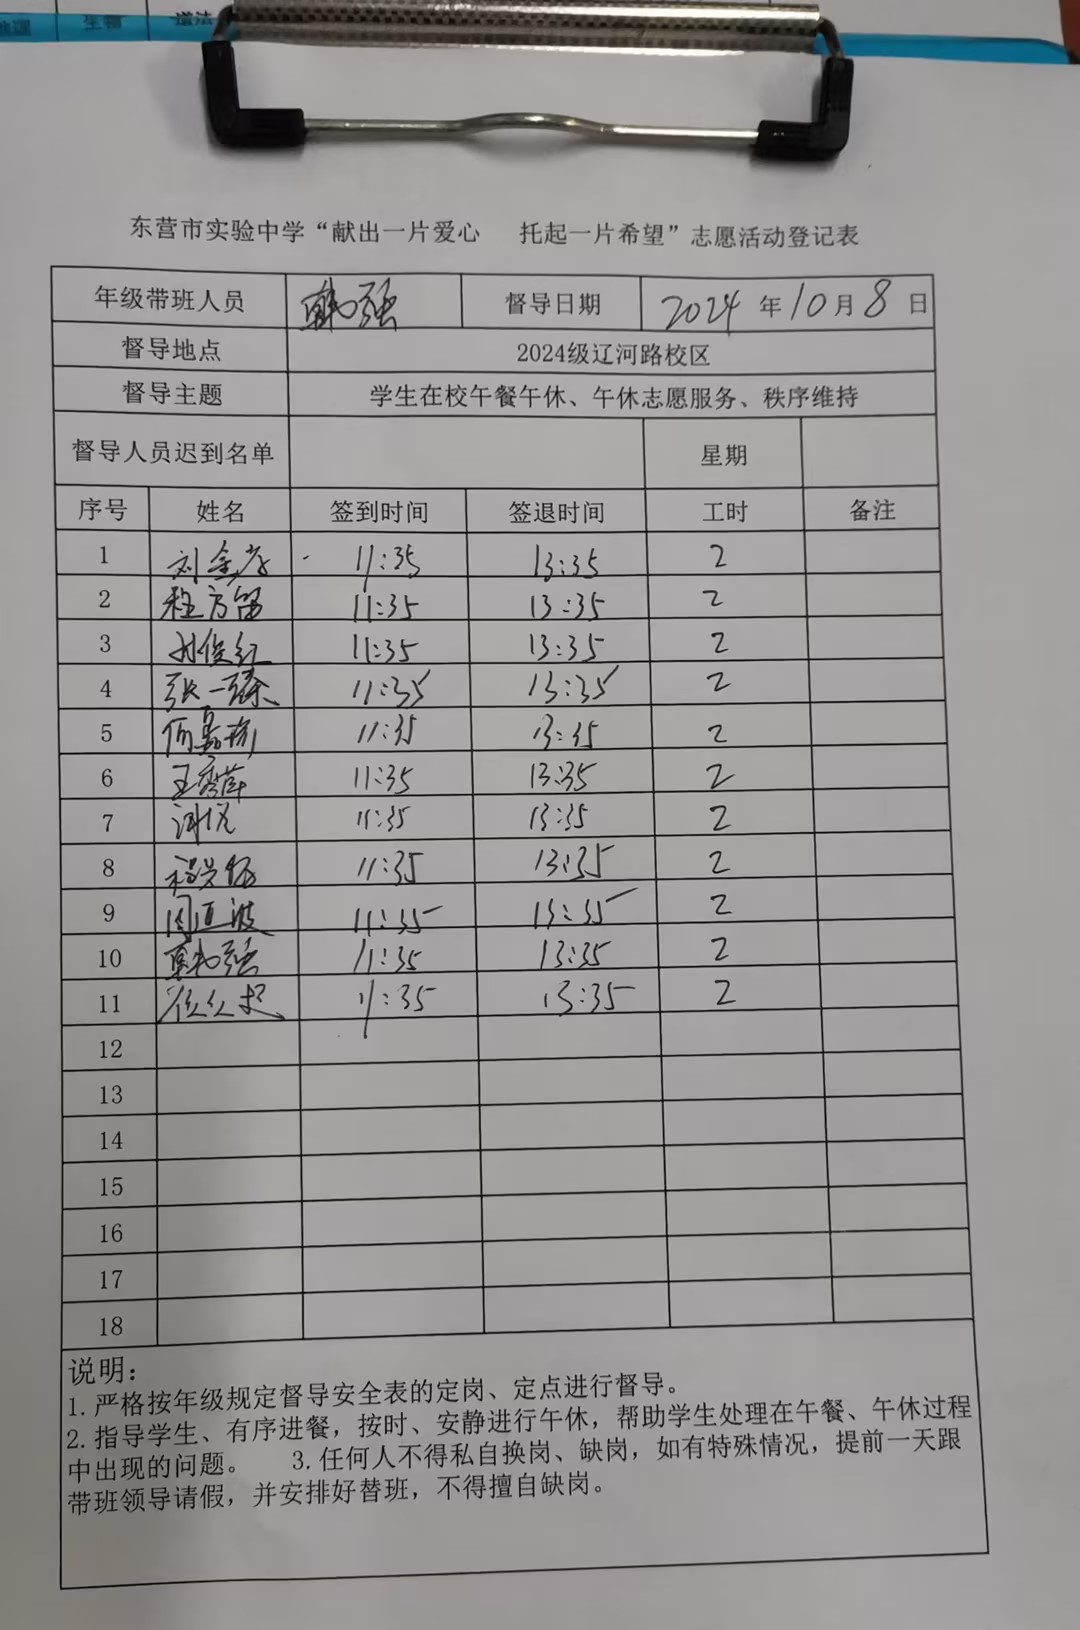 生物 道法
东营市实验中学“献出一片爱心 托起一片希望”志愿活动登记表
年级带班人员 韩强 督导日期 2024年10月8日
督导地点 2024级辽河路校区
督导主题 学生在校午餐午休、午休志愿服务、秩序维持
督导人员迟到名单 星期
序号 姓名 签到时间 签退时间 工时 备注
1 11:35 13:35 2
2 程方留 11:35 13:35 2
3 刘俊红 11:35 13:35 2
4 张一臻 11:35 13:35 2
5 11:35 13:35 2
6 11:35 13:35 2
7 11:35 13:35 2
8 11:35 13:35 2
9 11:35 13:35 2
10 韩强 11:35 13:35 2
11 11:35 13:35 2
12
13
14
15
16
17
18
说明：
1.严格按年级规定督导安全表的定岗、定点进行督导。
2.指导学生、有序进餐，按时、安静进行午休，帮助学生处理在午餐、午休过程
中出现的问题。 3.任何人不得私自换岗、缺岗，如有特殊情况，提前一天跟
带班领导请假，并安排好替班，不得擅自缺岗。